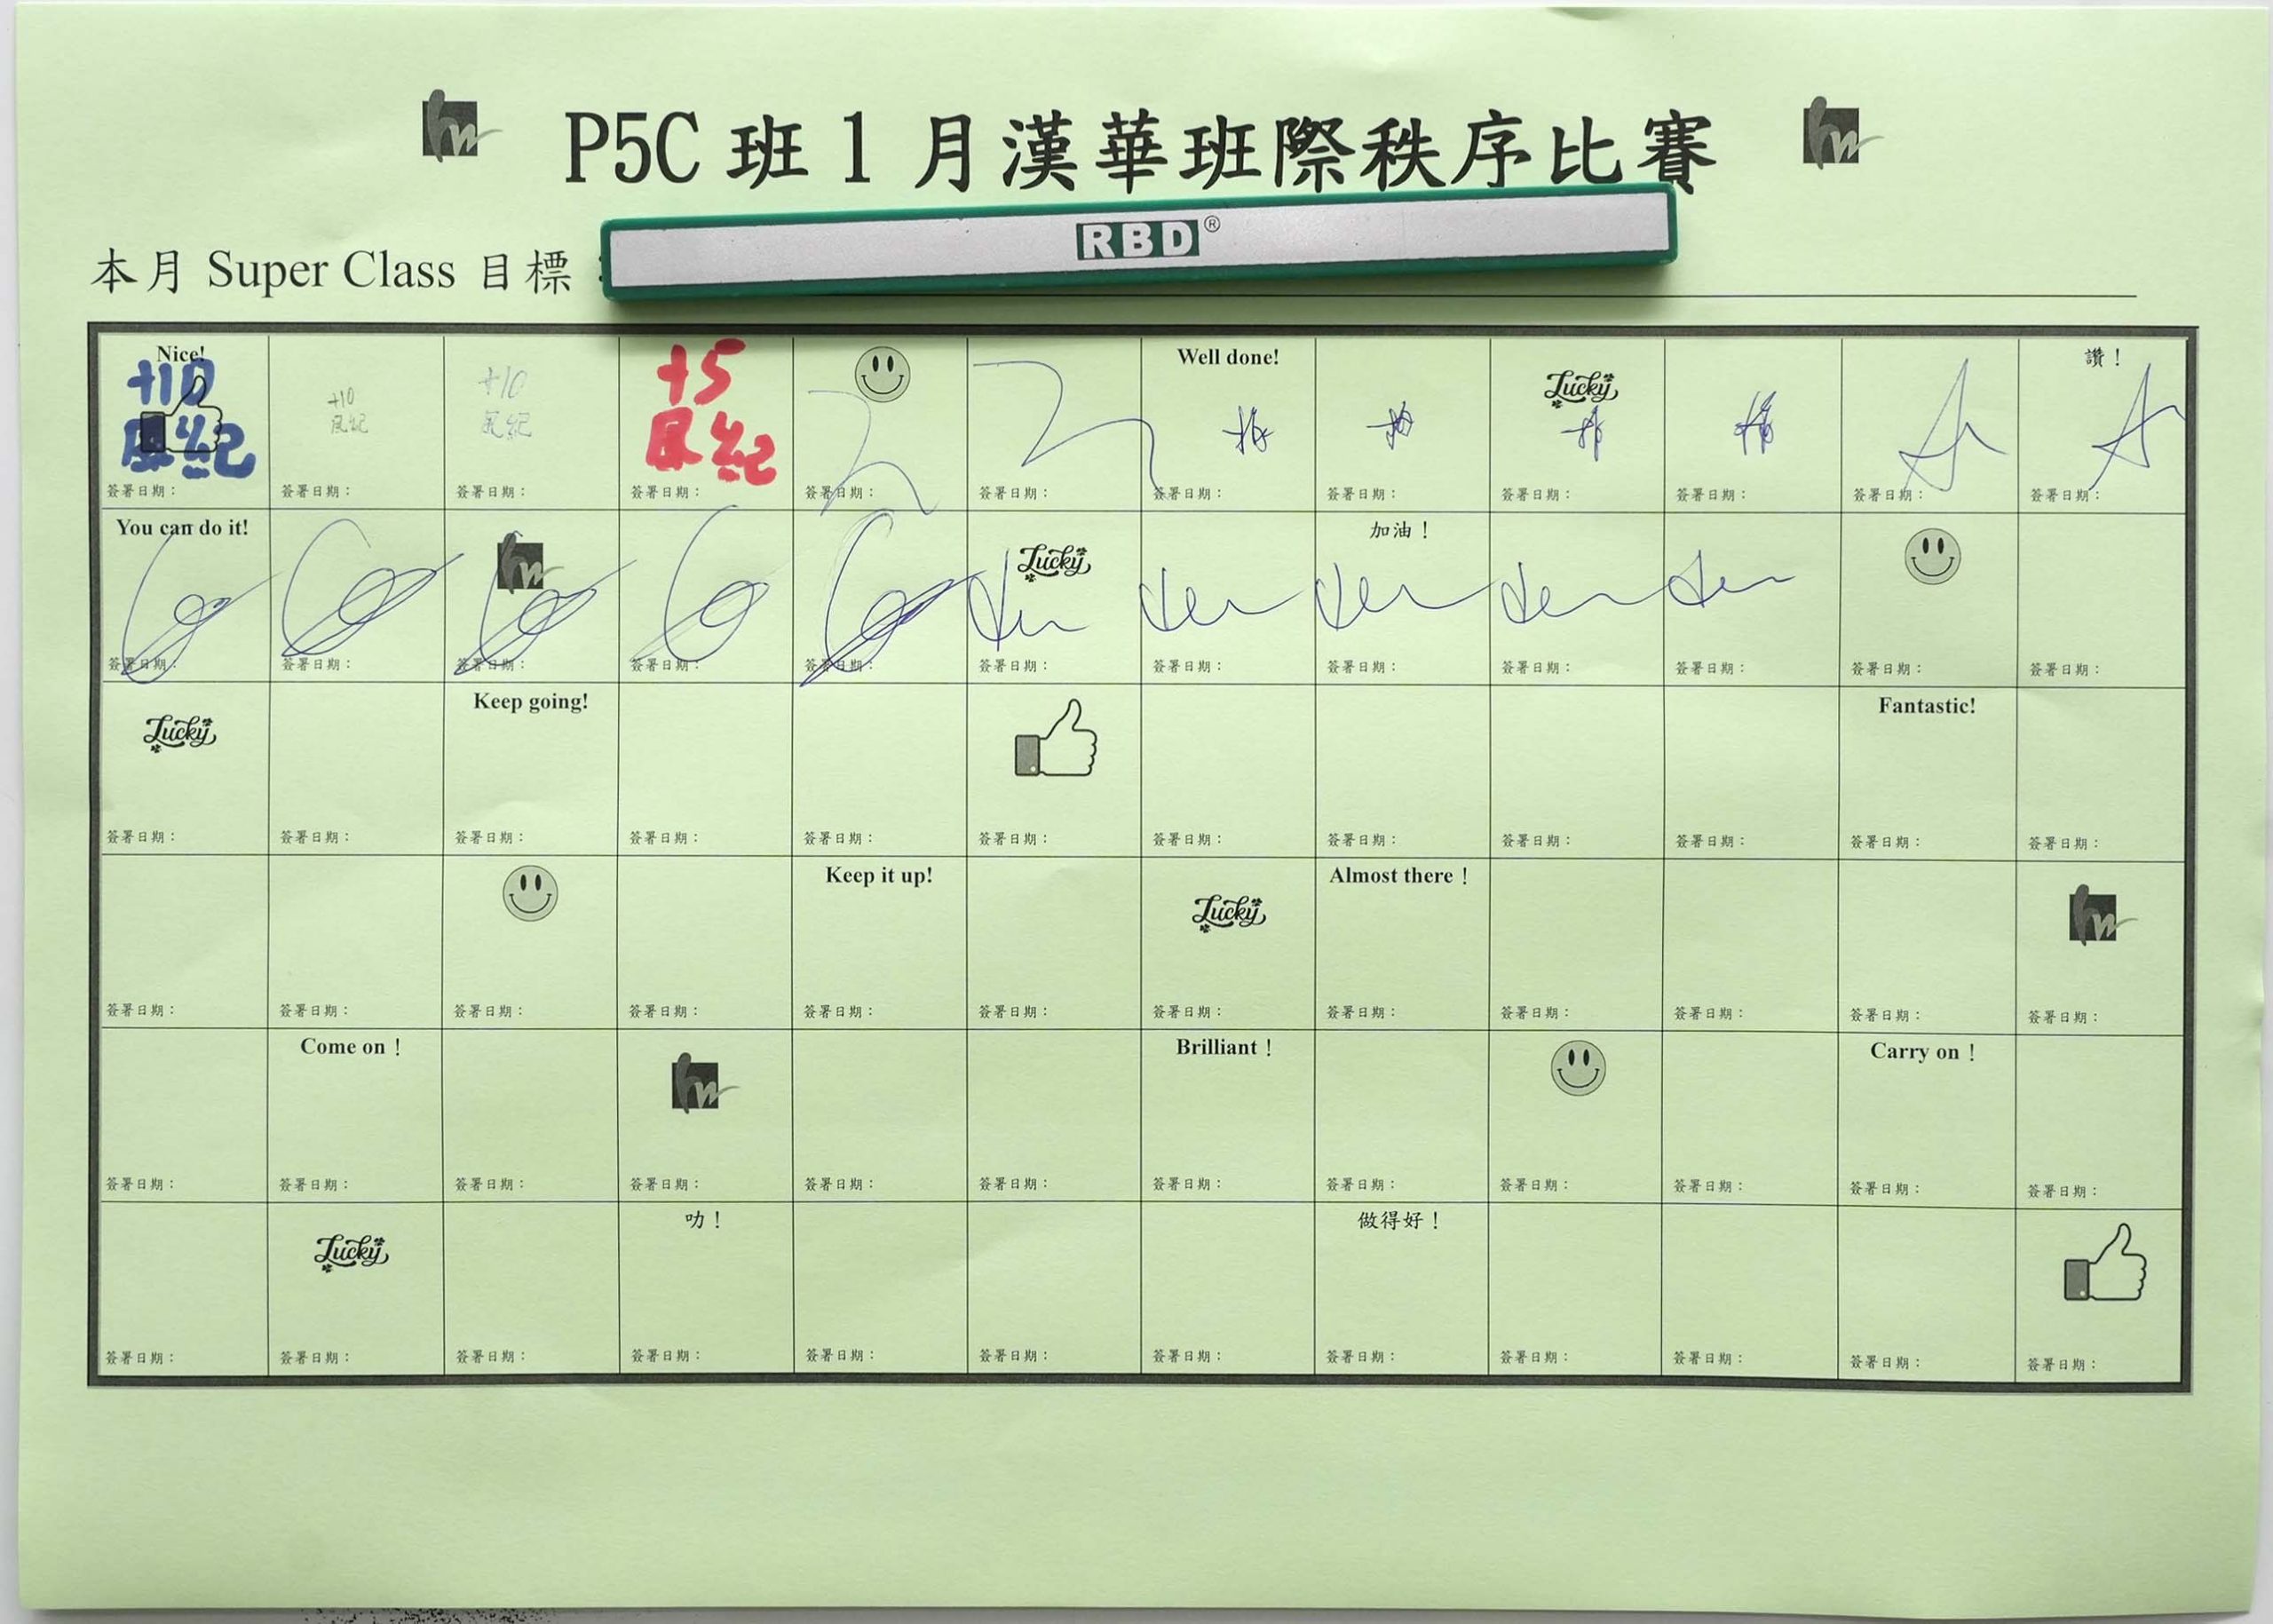 P5C 班 1 月漢華班際秩序比賽
RBD®
本月 Super Class 目標：
Nice! Well done! Lucky 讚！
+10 +10 +10 +5
風紀 風紀 風紀 風紀
簽署日期： 簽署日期： 簽署日期： 簽署日期： 簽署日期： 簽署日期： 簽署日期： 簽署日期： 簽署日期： 簽署日期： 簽署日期： 簽署日期：
You can do it! hw Lucky 加油！
簽署日期： 簽署日期： 簽署日期： 簽署日期： 簽署日期： 簽署日期： 簽署日期： 簽署日期： 簽署日期： 簽署日期： 簽署日期： 簽署日期：
Lucky Keep going! Fantastic!
簽署日期： 簽署日期： 簽署日期： 簽署日期： 簽署日期： 簽署日期： 簽署日期： 簽署日期： 簽署日期： 簽署日期： 簽署日期： 簽署日期：
Keep it up! Lucky Almost there！ hw
簽署日期： 簽署日期： 簽署日期： 簽署日期： 簽署日期： 簽署日期： 簽署日期： 簽署日期： 簽署日期： 簽署日期： 簽署日期： 簽署日期：
Come on！ hw Brilliant！ Carry on！
簽署日期： 簽署日期： 簽署日期： 簽署日期： 簽署日期： 簽署日期： 簽署日期： 簽署日期： 簽署日期： 簽署日期： 簽署日期： 簽署日期：
Lucky 叻！ 做得好！
簽署日期： 簽署日期： 簽署日期： 簽署日期： 簽署日期： 簽署日期： 簽署日期： 簽署日期： 簽署日期： 簽署日期： 簽署日期： 簽署日期：